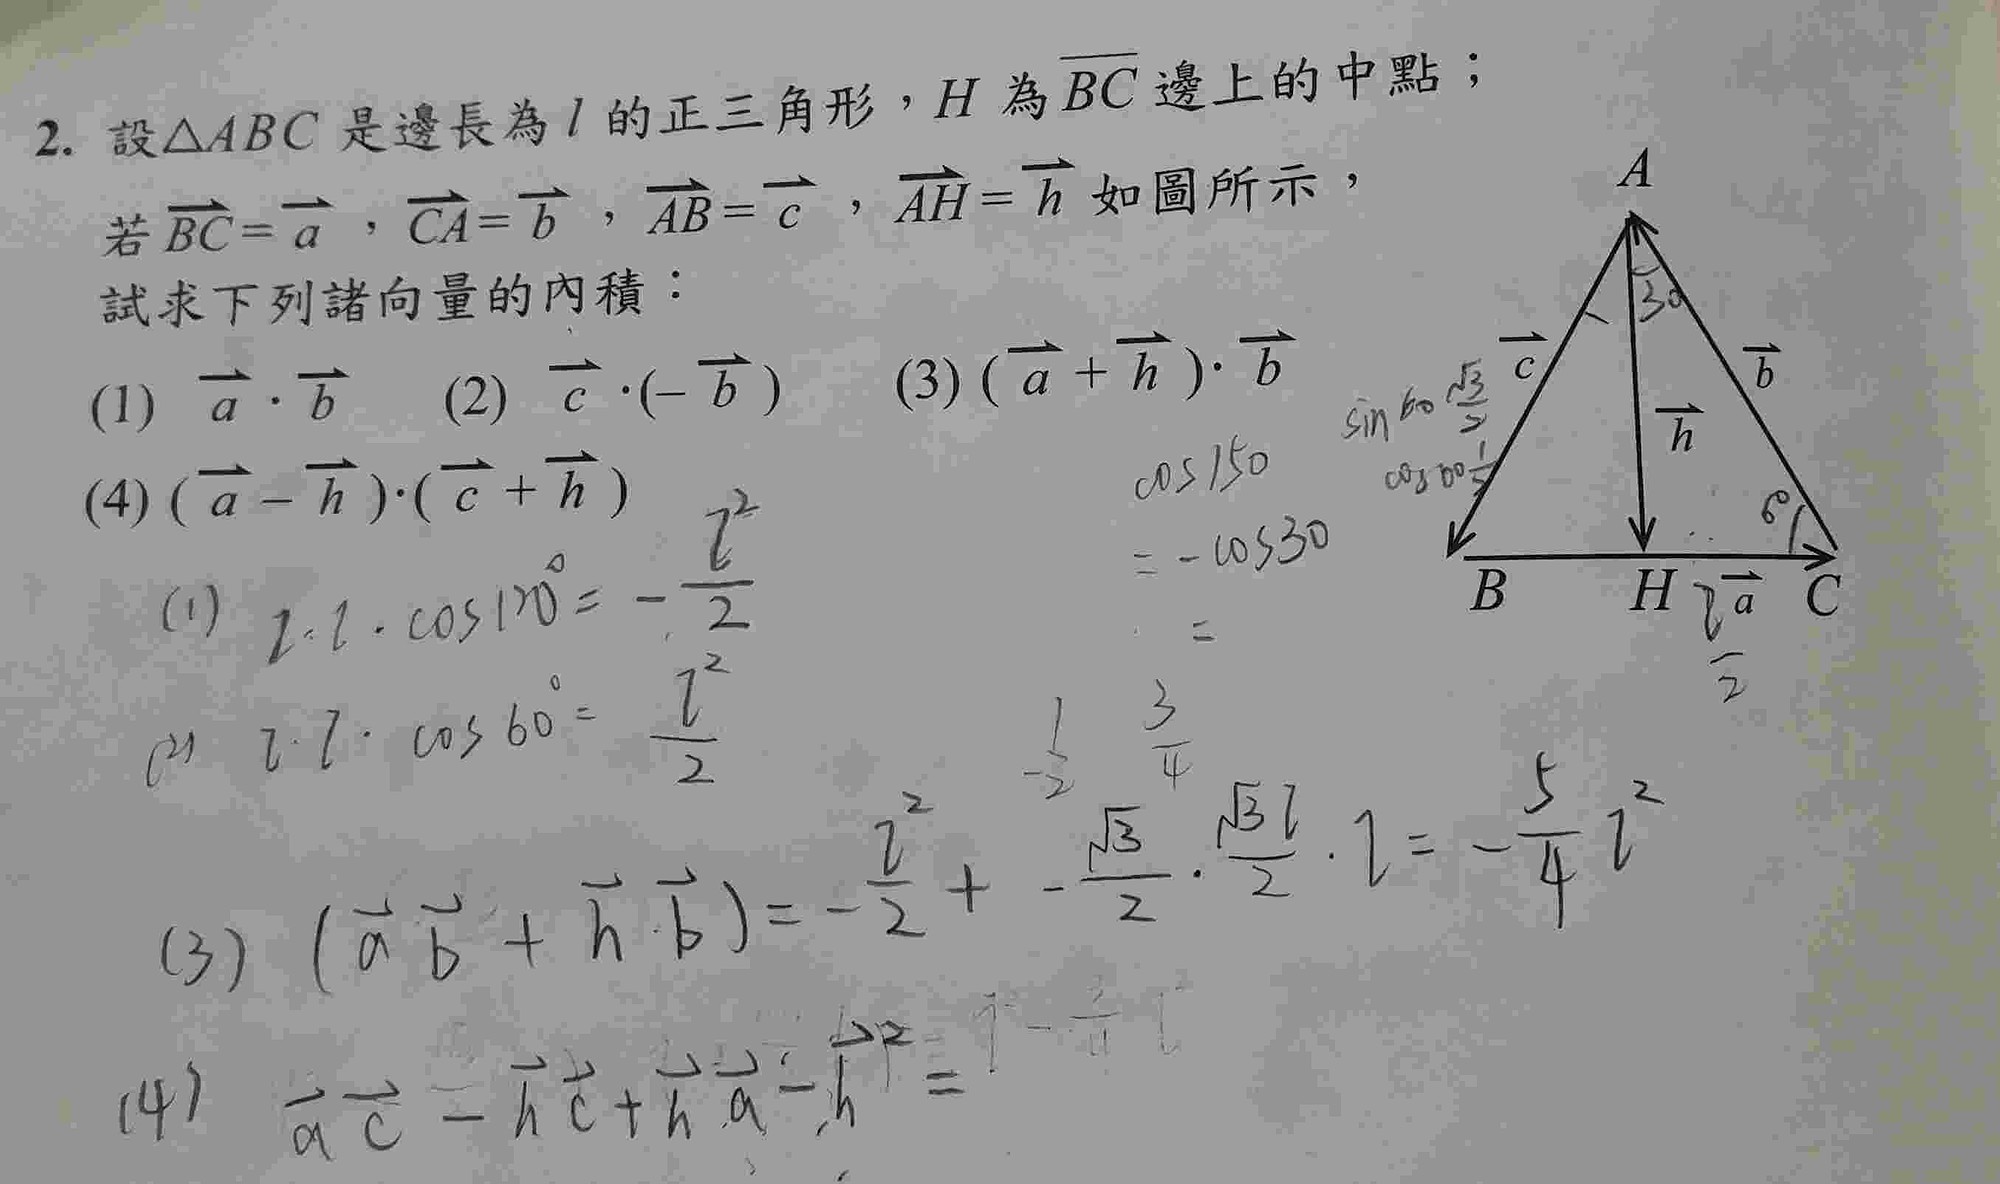 2. 設△ABC 是邊長為 l 的正三角形，H 為 \overline{BC} 邊上的中點；
若 \overrightarrow{BC} = \overrightarrow{a} ，\overrightarrow{CA} = \overrightarrow{b} ，\overrightarrow{AB} = \overrightarrow{c} ，\overrightarrow{AH} = \overrightarrow{h} 如圖所示，
試求下列諸向量的內積：
(1) \overrightarrow{a} · \overrightarrow{b} (2) \overrightarrow{c} ·(− \overrightarrow{b} ) (3) ( \overrightarrow{a} + \overrightarrow{h} )· \overrightarrow{b}
(4) ( \overrightarrow{a} − \overrightarrow{h} )·( \overrightarrow{c} + \overrightarrow{h} )
A
30
\overrightarrow{c}
\overrightarrow{b}
\overrightarrow{h}
sin 60 \frac{\sqrt{3}}{2}
B
H
\overrightarrow{a}
C
\frac{l}{2}
cos150
= -cos30
=
(1) l·l·cos120° = -\frac{l^2}{2}
(2) l·l·cos60° = \frac{l^2}{2}
\frac{3}{4}
(3) (\vec{a} \vec{b} + \vec{h}·\vec{b}) = -\frac{l^2}{2} + -\frac{\sqrt{3}}{2}·\frac{\sqrt{3}l}{2}·l = -\frac{5}{4} l^2
(4) \vec{a} \vec{c} - \vec{h} \vec{c} + \vec{h} \vec{a} - \vec{h}^2 =